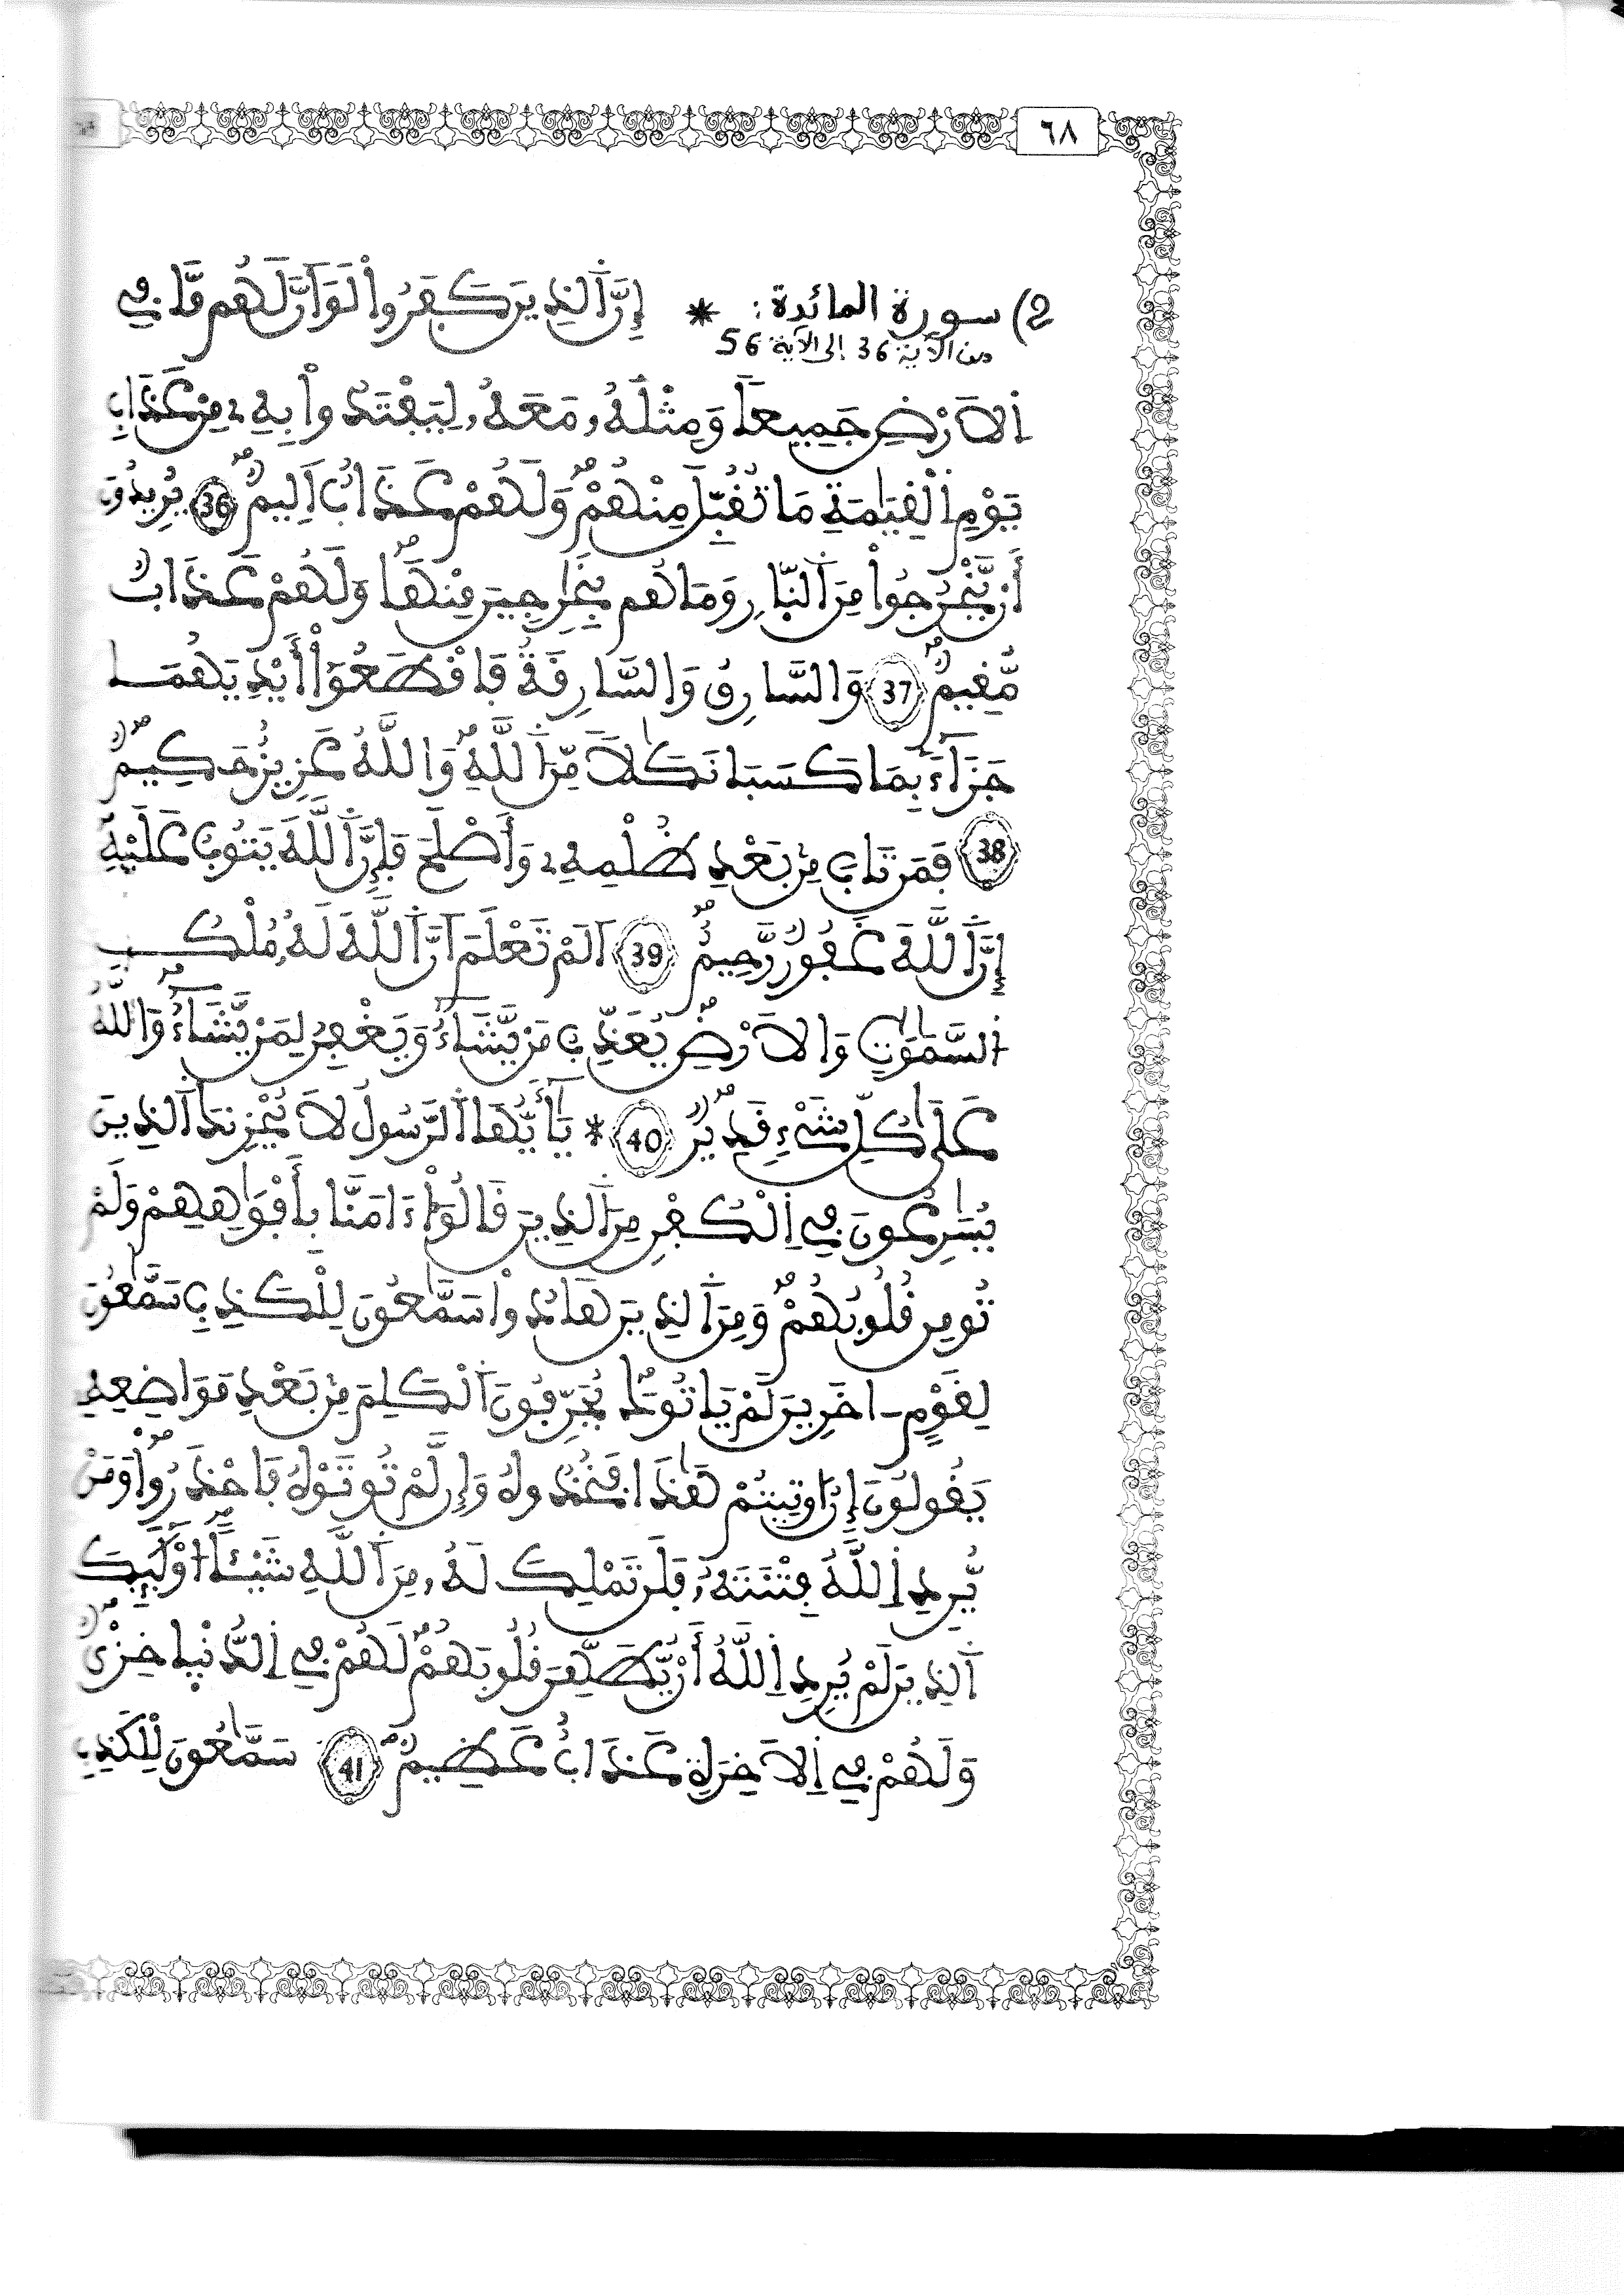 ٦٨
2) سورة المائدة: * إِنَّ ٱلذِينَ كَفَرُواْ لَوَ اَنَّ لَهُم مَّا فِے
من الآية 36 إلى الآية 56
اِ۬لَارْضِ جَمِيعاٗ وَمِثْلَهُۥ مَعَهُۥ لِيَفْتَدُواْ بِهِۦ مِنْ عَذَابِ
يَوْمِ اِ۬لْقِيَٰمَةِ مَا تُقُبِّلَ مِنْهُمْۖ وَلَهُمْ عَذَابٌ اَلِيمٞۖ 36 يُرِيدُونَ
أَنْ يَّخْرُجُواْ مِنَ اَ۬لنّ۪ارِ وَمَا هُم بِخَٰرِجِينَ مِنْهَاۖ وَلَهُمْ عَذَابٞ
مُّقِيمٞۖ 37 وَالسَّارِقُ وَالسَّارِقَةُ فَاقْطَعُوٓاْ أَيْدِيَهُمَا
جَزَآءَۢ بِمَا كَسَبَا نَكَٰلاٗ مِّنَ اَ۬للَّهِۖ وَاللَّهُ عَزِيزٌ حَكِيمٞۖ
38 فَمَن تَابَ مِنۢ بَعْدِ ظُلْمِهِۦ وَأَصْلَحَ فَإِنَّ اَ۬للَّهَ يَتُوبُ عَلَيْهِۖ
إِنَّ اَ۬للَّهَ غَفُورٞ رَّحِيمٌۖ 39 اَلَمْ تَعْلَمَ اَنَّ اَ۬للَّهَ لَهُۥ مُلْكُ
اُ۬لسَّمَٰوَٰتِ وَالَارْضِ يُعَذِّبُ مَنْ يَّشَآءُ وَيَغْفِرُ لِمَنْ يَّشَآءُۖ وَاللَّهُ
عَلَيٰ كُلِّ شَےْءٖ قَدِيرٞۖ 40 * يَٰٓأَيُّهَا اَ۬لرَّسُولُ لَا يُحْزِنكَ اَ۬لذِينَ
يُسَٰرِعُونَ فِے اِ۬لْكُفْرِ مِنَ اَ۬لذِينَ قَالُوٓاْ ءَامَنَّا بِأَفْوَٰهِهِمْ وَلَمْ
تُومِن قُلُوبُهُمْۖ وَمِنَ اَ۬لذِينَ هَادُواْ سَمَّٰعُونَ لِلْكَذِبِ سَمَّٰعُونَ
لِقَوْمٍ اٰخَرِينَ لَمْ يَاتُوكَۖ يُحَرِّفُونَ اَ۬لْكَلِمَ مِنۢ بَعْدِ مَوَاضِعِهِۦ
يَقُولُونَ إِنُ ا۟وتِيتُمْ هَٰذَا فَخُذُوهُ وَإِن لَّمْ تُوتَوْهُ فَاحْذَرُواْۖ وَمَنْ
يُّرِدِ اِ۬للَّهُ فِتْنَتَهُۥ فَلَن تَمْلِكَ لَهُۥ مِنَ اَ۬للَّهِ شَيْـٔاًۖ ا۟وْلَٰٓئِكَ
اَ۬لذِينَ لَمْ يُرِدِ اِ۬للَّهُ أَنْ يُّطَهِّرَ قُلُوبَهُمْۖ لَهُمْ فِے اِ۬لدُّنْي۪ا خِزْيٞۖ
وَلَهُمْ فِے اِ۬لَاخِرَةِ عَذَابٌ عَظِيمٞۖ 41 سَمَّٰعُونَ لِلْكَذِبِ